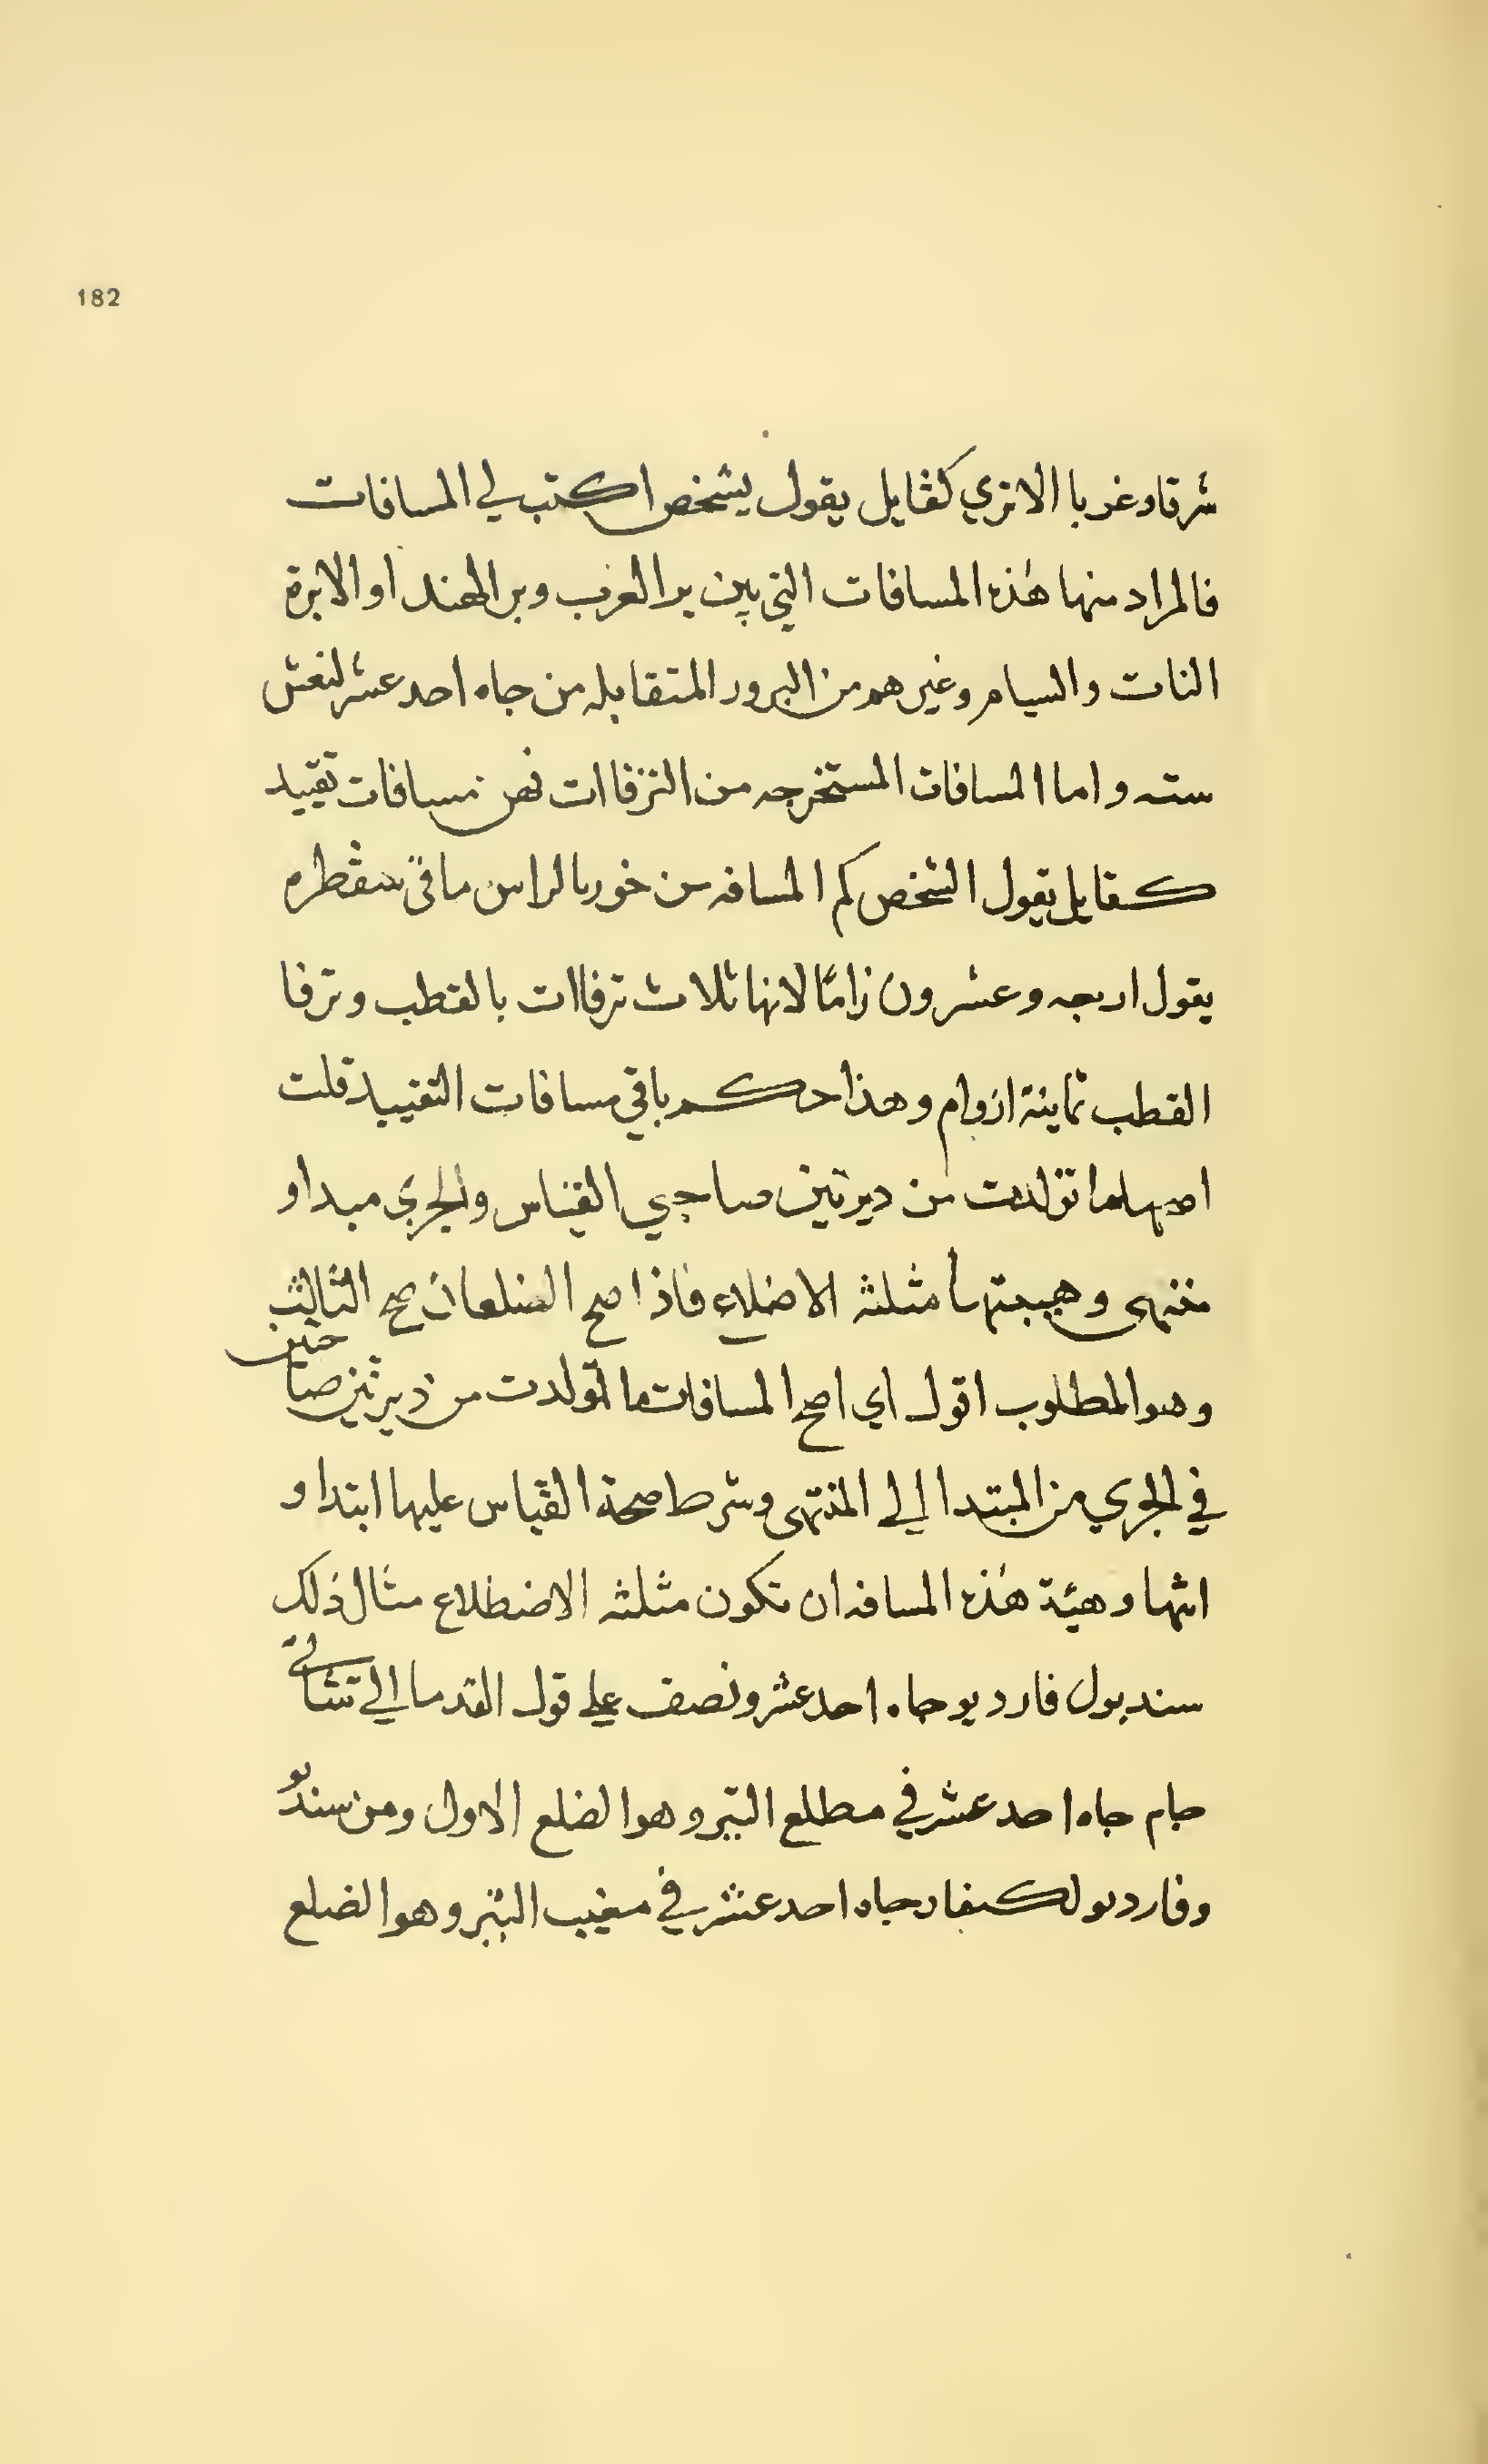 182
شرقا وغربا الاتري كقايل يقول يشخص اكتب لي المسافات
فالمراد منها هذه المسافات التي بين بر العرب وبر الهند او الابرة
النات والسيام وغيرهم من البرور المتقابله من جاه احد عشر لنعش
سته واما المسافات المستخرجه من الترفاات فهن مسافات تقييد
كقايل يقول الشخص كم المسافه من خوريا لراس مافي سقطره
يقول اربعه وعشرون زامًا لانها ثلاث ترفاات بالقطب وترفا
القطب ثماينة ازوام وهذا حكم باقي مسافات التقييد قلت
اصهاما تولدت من ديرتين صاحي القياس والجري مبدا و
منتهى وهيبتها مثلثه الاضلاع فاذا صح الضلعان صح الثالث
وهو المطلوب اقول اي اصح المسافات ما تولدت من ديرتين صاحتين
في الجري من المبتدا الي المنتهى وشرط صحة القياس عليها ابتدا و
انتها وهيئة هذه المسافه ان تكون مثلثه الاضطلاع مثال ذلك
سندبول فارديو جاه احد عشر ونصف علي قول القدما الي تشاتي
جام جاه احد عشر في مطلع التير وهو الضلع الاول ومن سندبو
وفارديو لكنفار جاه احد عشر في مغيب التير وهو الضلع